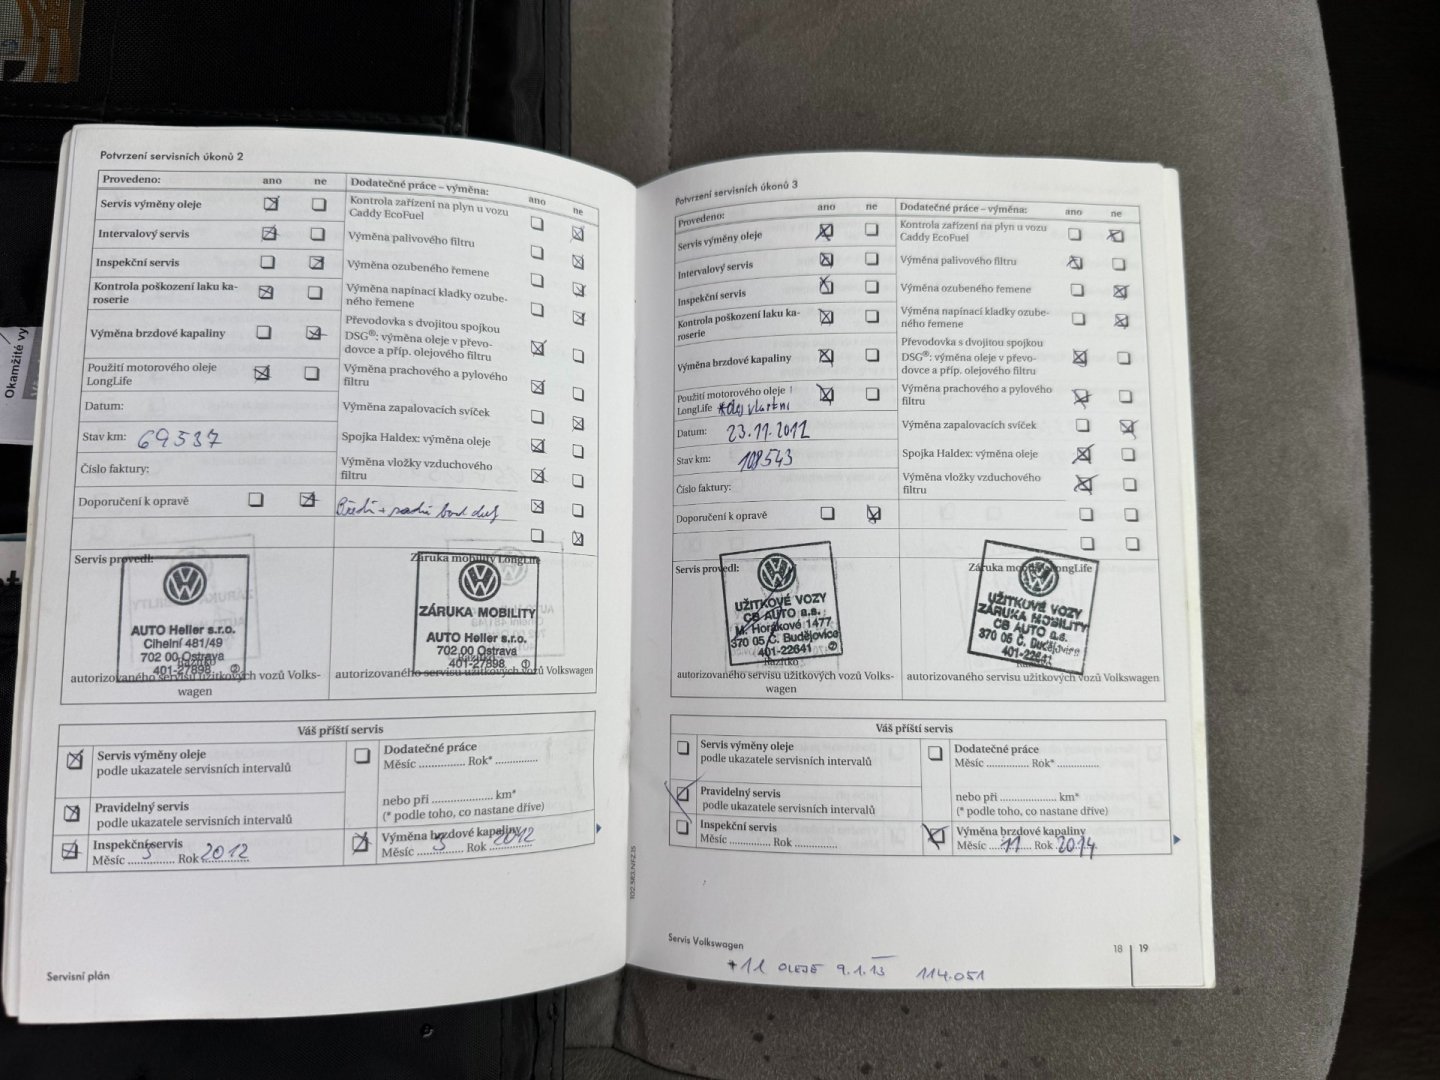 Okamžité vy
Potvrzení servisních úkonů 2
Provedeno: ano ne Dodatečné práce – výměna: ano ne
Servis výměny oleje
Kontrola zařízení na plyn u vozu
Caddy EcoFuel
Intervalový servis
Výměna palivového filtru
Inspekční servis
Výměna ozubeného řemene
Kontrola poškození laku ka-
roserie
Výměna napínací kladky ozube-
ného řemene
Výměna brzdové kapaliny
Převodovka s dvojitou spojkou
DSG®: výměna oleje v převo-
dovce a příp. olejového filtru
Použití motorového oleje
LongLife
Výměna prachového a pylového
filtru
Datum:
Výměna zapalovacích svíček
Stav km: 69537
Spojka Haldex: výměna oleje
Číslo faktury:
Výměna vložky vzduchového
filtru
Doporučení k opravě
Servis provedl:
Záruka mobility LongLife
AUTO Heller s.r.o.
Cihelní 481/49
702 00 Ostrava
Razítko
401-27898 2
autorizovaného servisu užitkových vozů Volks-
wagen
ZÁRUKA MOBILITY
AUTO Heller s.r.o.
702 00 Ostrava
401-27898 1
autorizovaného servisu užitkových vozů Volkswagen
Váš příští servis
Servis výměny oleje
podle ukazatele servisních intervalů
Dodatečné práce
Měsíc ............... Rok* ..............
Pravidelný servis
podle ukazatele servisních intervalů
nebo při ..................... km*
(* podle toho, co nastane dříve)
Inspekční servis
Měsíc 5 Rok 2012
Výměna brzdové kapaliny
Měsíc 5 Rok 2012
Servisní plán
Potvrzení servisních úkonů 3
Provedeno: ano ne Dodatečné práce – výměna: ano ne
Servis výměny oleje
Kontrola zařízení na plyn u vozu
Caddy EcoFuel
Intervalový servis
Výměna palivového filtru
Inspekční servis
Výměna ozubeného řemene
Kontrola poškození laku ka-
roserie
Výměna napínací kladky ozube-
ného řemene
Výměna brzdové kapaliny
Převodovka s dvojitou spojkou
DSG®: výměna oleje v převo-
dovce a příp. olejového filtru
Použití motorového oleje
LongLife *olej vlastní
Výměna prachového a pylového
filtru
Datum: 23.11.2012
Výměna zapalovacích svíček
Stav km: 108543
Spojka Haldex: výměna oleje
Číslo faktury:
Výměna vložky vzduchového
filtru
Doporučení k opravě
Servis provedl:
Záruka mobility LongLife
UŽITKOVÉ VOZY
CB AUTO a.s.
M. Horákové 1477
370 05 Č. Budějovice
401-22641 2
Razítko
autorizovaného servisu užitkových vozů Volks-
wagen
UŽITKOVÉ VOZY
ZÁRUKA MOBILITY
CB AUTO a.s.
370 05 Č. Budějovice
401-22641
autorizovaného servisu užitkových vozů Volkswagen
Váš příští servis
Servis výměny oleje
podle ukazatele servisních intervalů
Dodatečné práce
Měsíc ............... Rok* ..............
Pravidelný servis
podle ukazatele servisních intervalů
nebo při ..................... km*
(* podle toho, co nastane dříve)
Inspekční servis
Měsíc ............... Rok ..............
Výměna brzdové kapaliny
Měsíc 11 Rok 2014
102.5R3.NFZ.15
Servis Volkswagen
18 19
*1L OLEJE 9.1.13 114.051